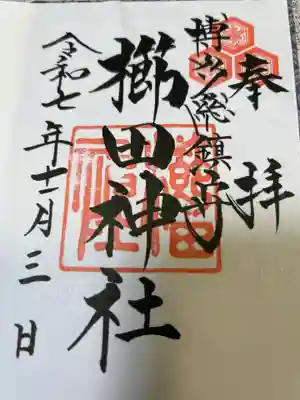 奉拝
博多総鎮守
櫛田神社
令和七年十二月三日